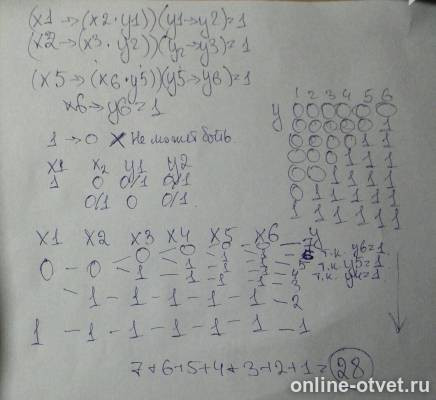 (x1→(x2·y1))(y1→y2)=1
(x2→(x3·y2))(y2→y3)=1
(x5→(x6·y5))(y5→y6)=1
x6→y6=1
1→0 X Не может быть.
x1 x2 y1 y2
1 0 0/1 0/1
0/1 0 0/1
1 2 3 4 5 6
y 0 0 0 0 0 0
0 0 0 0 0 1
0 0 0 0 1 1
0 0 0 1 1 1
0 0 1 1 1 1
0 1 1 1 1 1
1 1 1 1 1 1
x1 x2 x3 x4 x5 x6 y
0 - 0 - 0 - 0 - 0 7
1 - 1 - 1 5 т.к. y6=1
т.к. y5=1
т.к. y4=1
1 - 1 - 1 - 1 - 1 - 2
1 - 1 - 1 - 1 - 1 - 1 - 1
7+6+5+4+3+2+1=28
online-otvet.ru